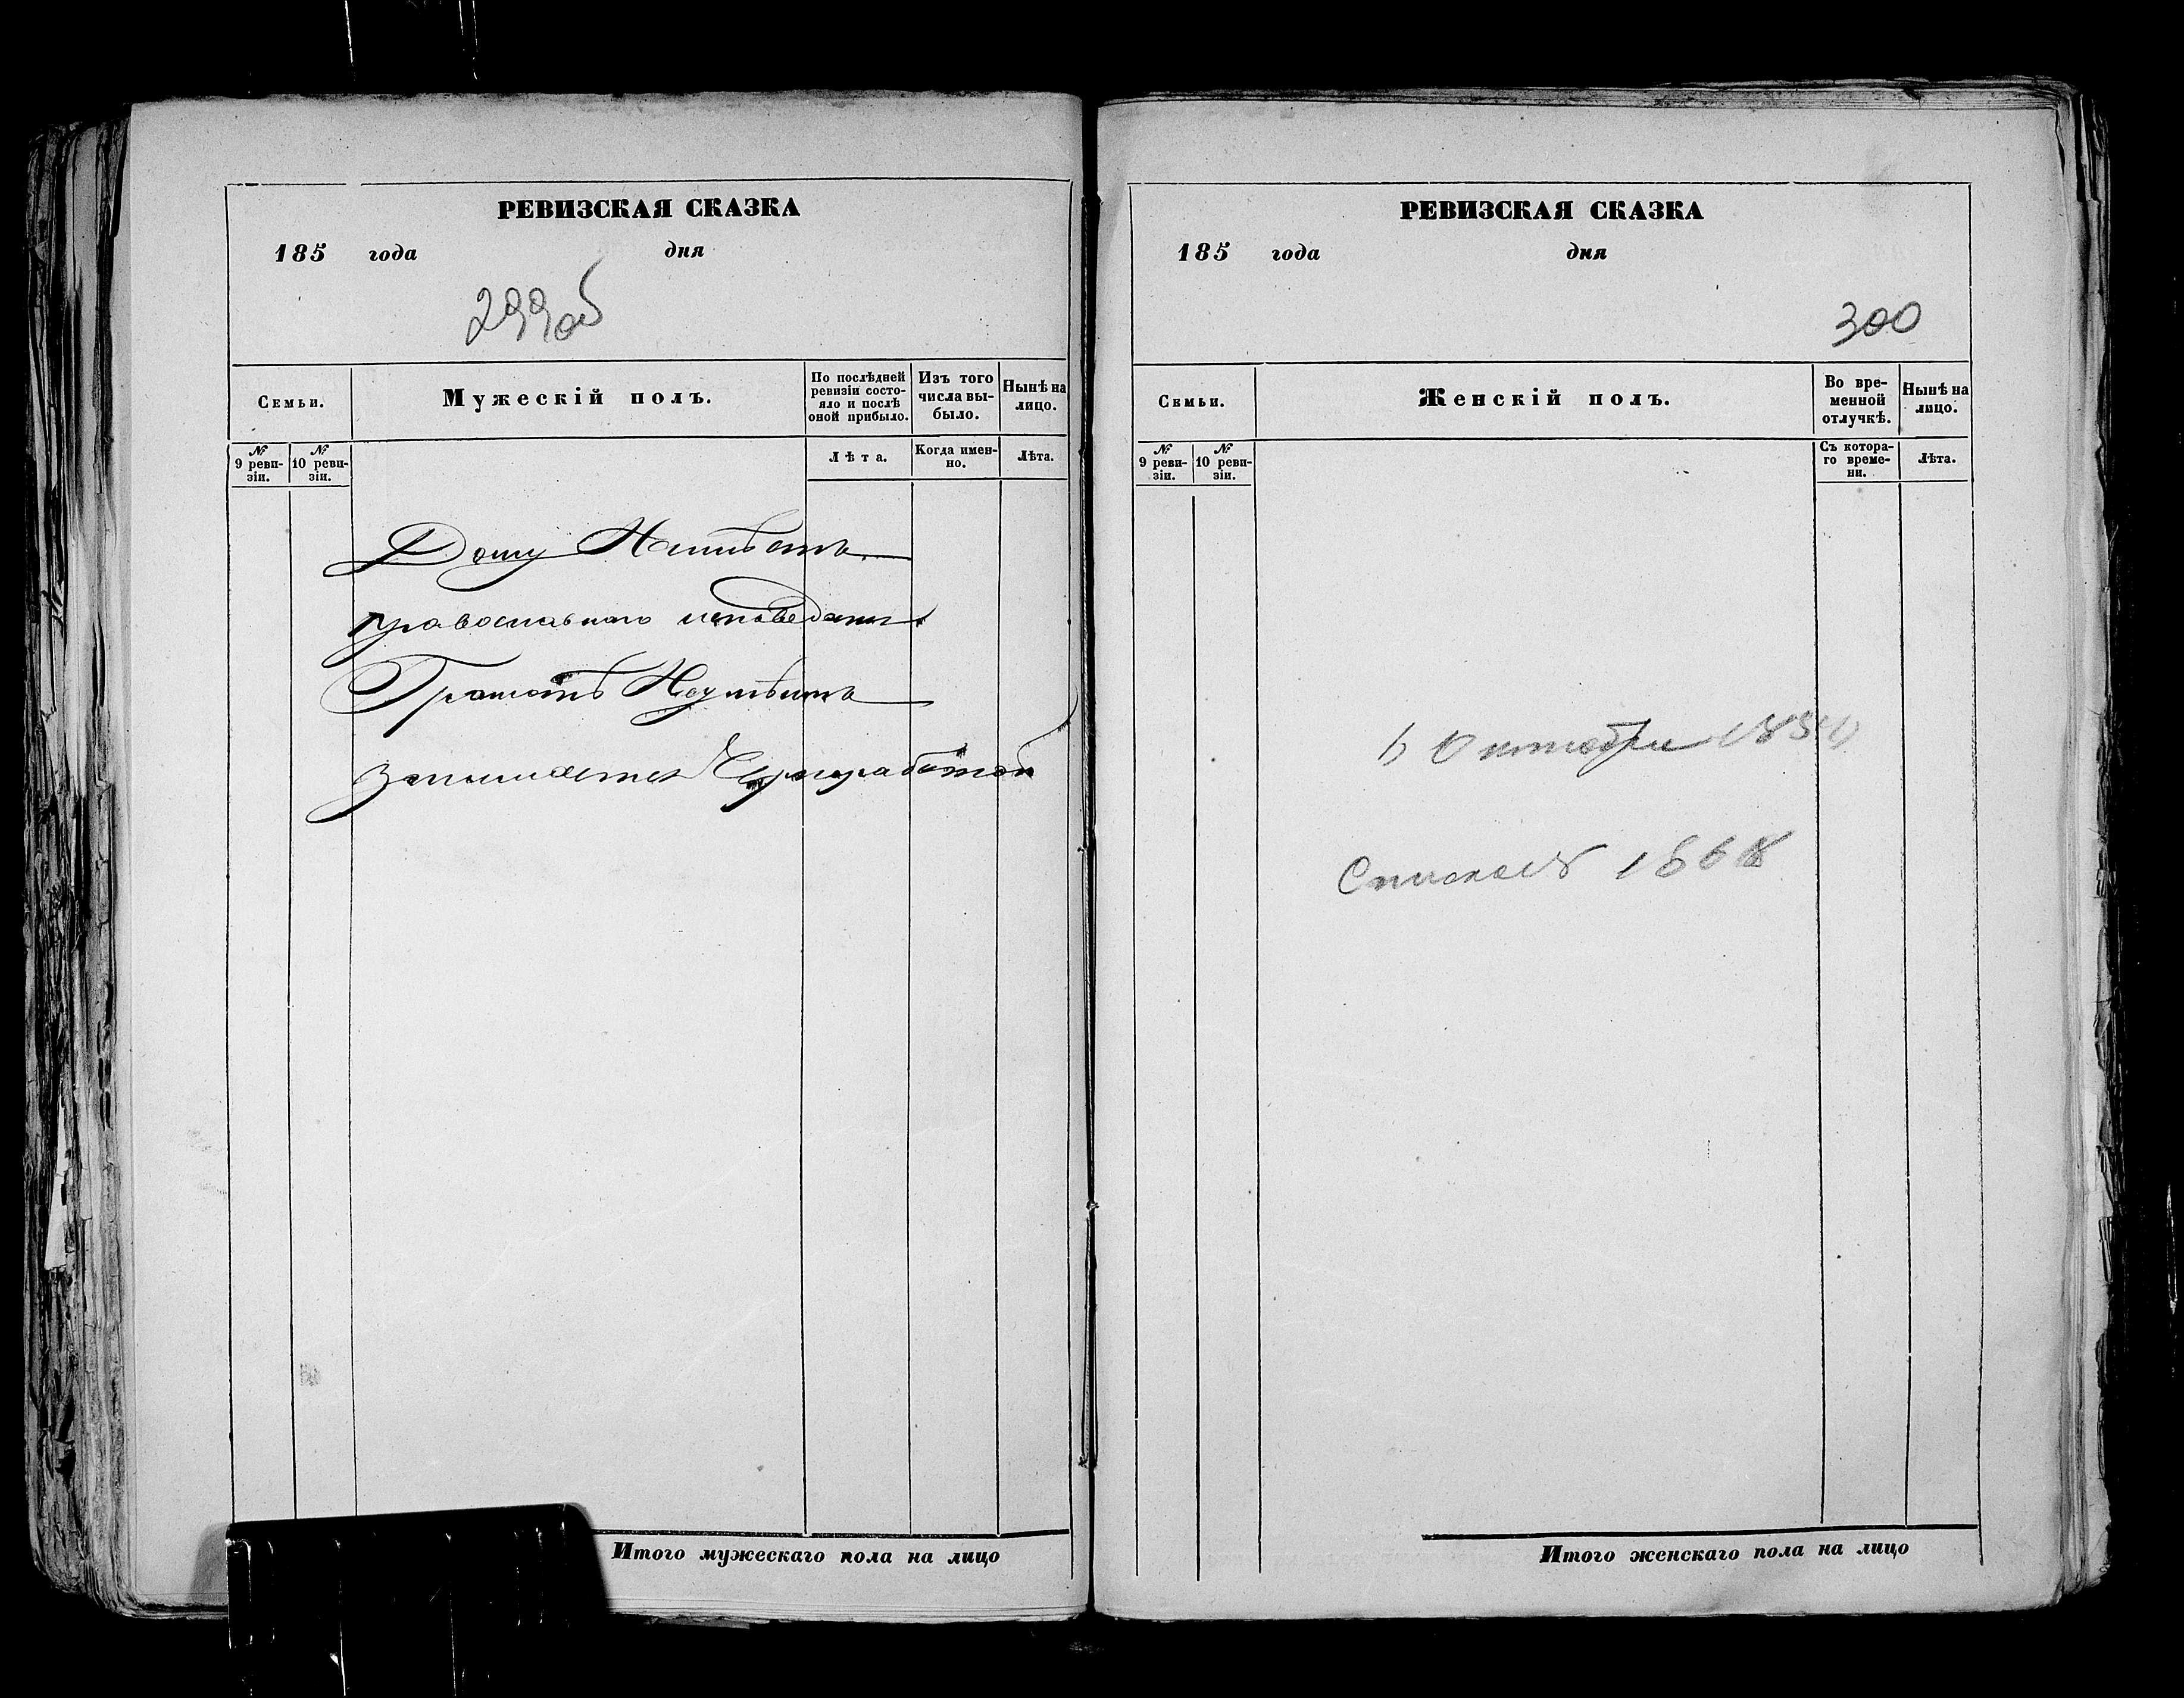 РЕВИЗСКАЯ СКАЗКА
185 года дня
299об
Семьи.
Мужескій полъ.
По послѣдней ревизіи состояло и послѣ оной прибыло.
Изъ того числа выбыло.
Нынѣ на лицо.
№ 9 ревизіи.
№ 10 ревизіи.
Лѣта.
Когда именно.
Лѣта.
Дому Неимѣетъ
православнаго исповеданія
Грамотѣ Неумѣитъ
занимается Черноработой
Итого мужескаго пола на лицо
РЕВИЗСКАЯ СКАЗКА
185 года дня
300
Семьи.
Женскій полъ.
Во временной отлучкѣ.
Нынѣ на лицо.
№ 9 ревизіи.
№ 10 ревизіи.
Съ котораго времени.
Лѣта.
Октября
1868
Итого женскаго пола на лицо